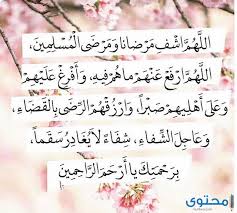 اللَّهُمَّ اشْفِ مَرْضَانَا وَمَرْضَى الْمُسْلِمِينَ،
اللَّهُمَّ ارْفَعْ عَنْهُمْ مَا هُمْ فِيهِ، وَأَفْرِغْ عَلَيْهِمْ
وَعَلَى أَهْلِيهِمْ صَبْرًا، وَارْزُقْهُمُ الرِّضَى بِالْقَضَاءِ،
وَعَاجِلَ الشِّفَاءِ، شِفَاءً لَا يُغَادِرُ سَقَمًا،
بِرَحْمَتِكَ يَا أَرْحَمَ الرَّاحِمِينَ
محتوى